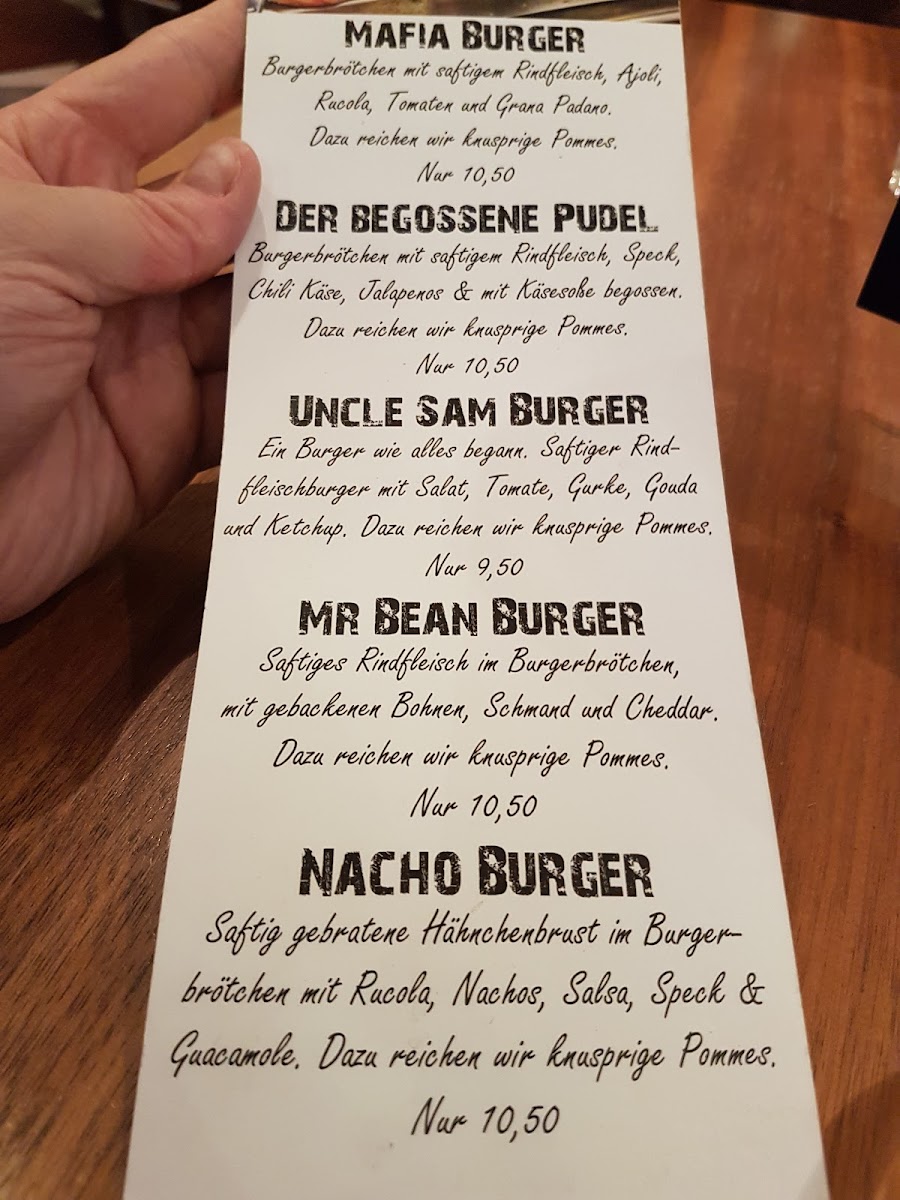 MAFIA BURGER
Burgerbrötchen mit saftigem Rindfleisch, Ajoli,
Rucola, Tomaten und Grana Padano.
Dazu reichen wir knusprige Pommes.
Nur 10,50
DER BEGOSSENE PUDEL
Burgerbrötchen mit saftigem Rindfleisch, Speck,
Chili Käse, Jalapenos & mit Käsesoße begossen.
Dazu reichen wir knusprige Pommes.
Nur 10,50
UNCLE SAM BURGER
Ein Burger wie alles begann. Saftiger Rind-
fleischburger mit Salat, Tomate, Gurke, Gouda
und Ketchup. Dazu reichen wir knusprige Pommes.
Nur 9,50
MR BEAN BURGER
Saftiges Rindfleisch im Burgerbrötchen,
mit gebackenen Bohnen, Schmand und Cheddar.
Dazu reichen wir knusprige Pommes.
Nur 10,50
NACHO BURGER
Saftig gebratene Hähnchenbrust im Burger-
brötchen mit Rucola, Nachos, Salsa, Speck &
Guacamole. Dazu reichen wir knusprige Pommes.
Nur 10,50